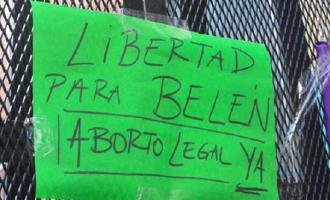 LIBERTAD
PARA BELÉN
ABORTO LEGAL YA